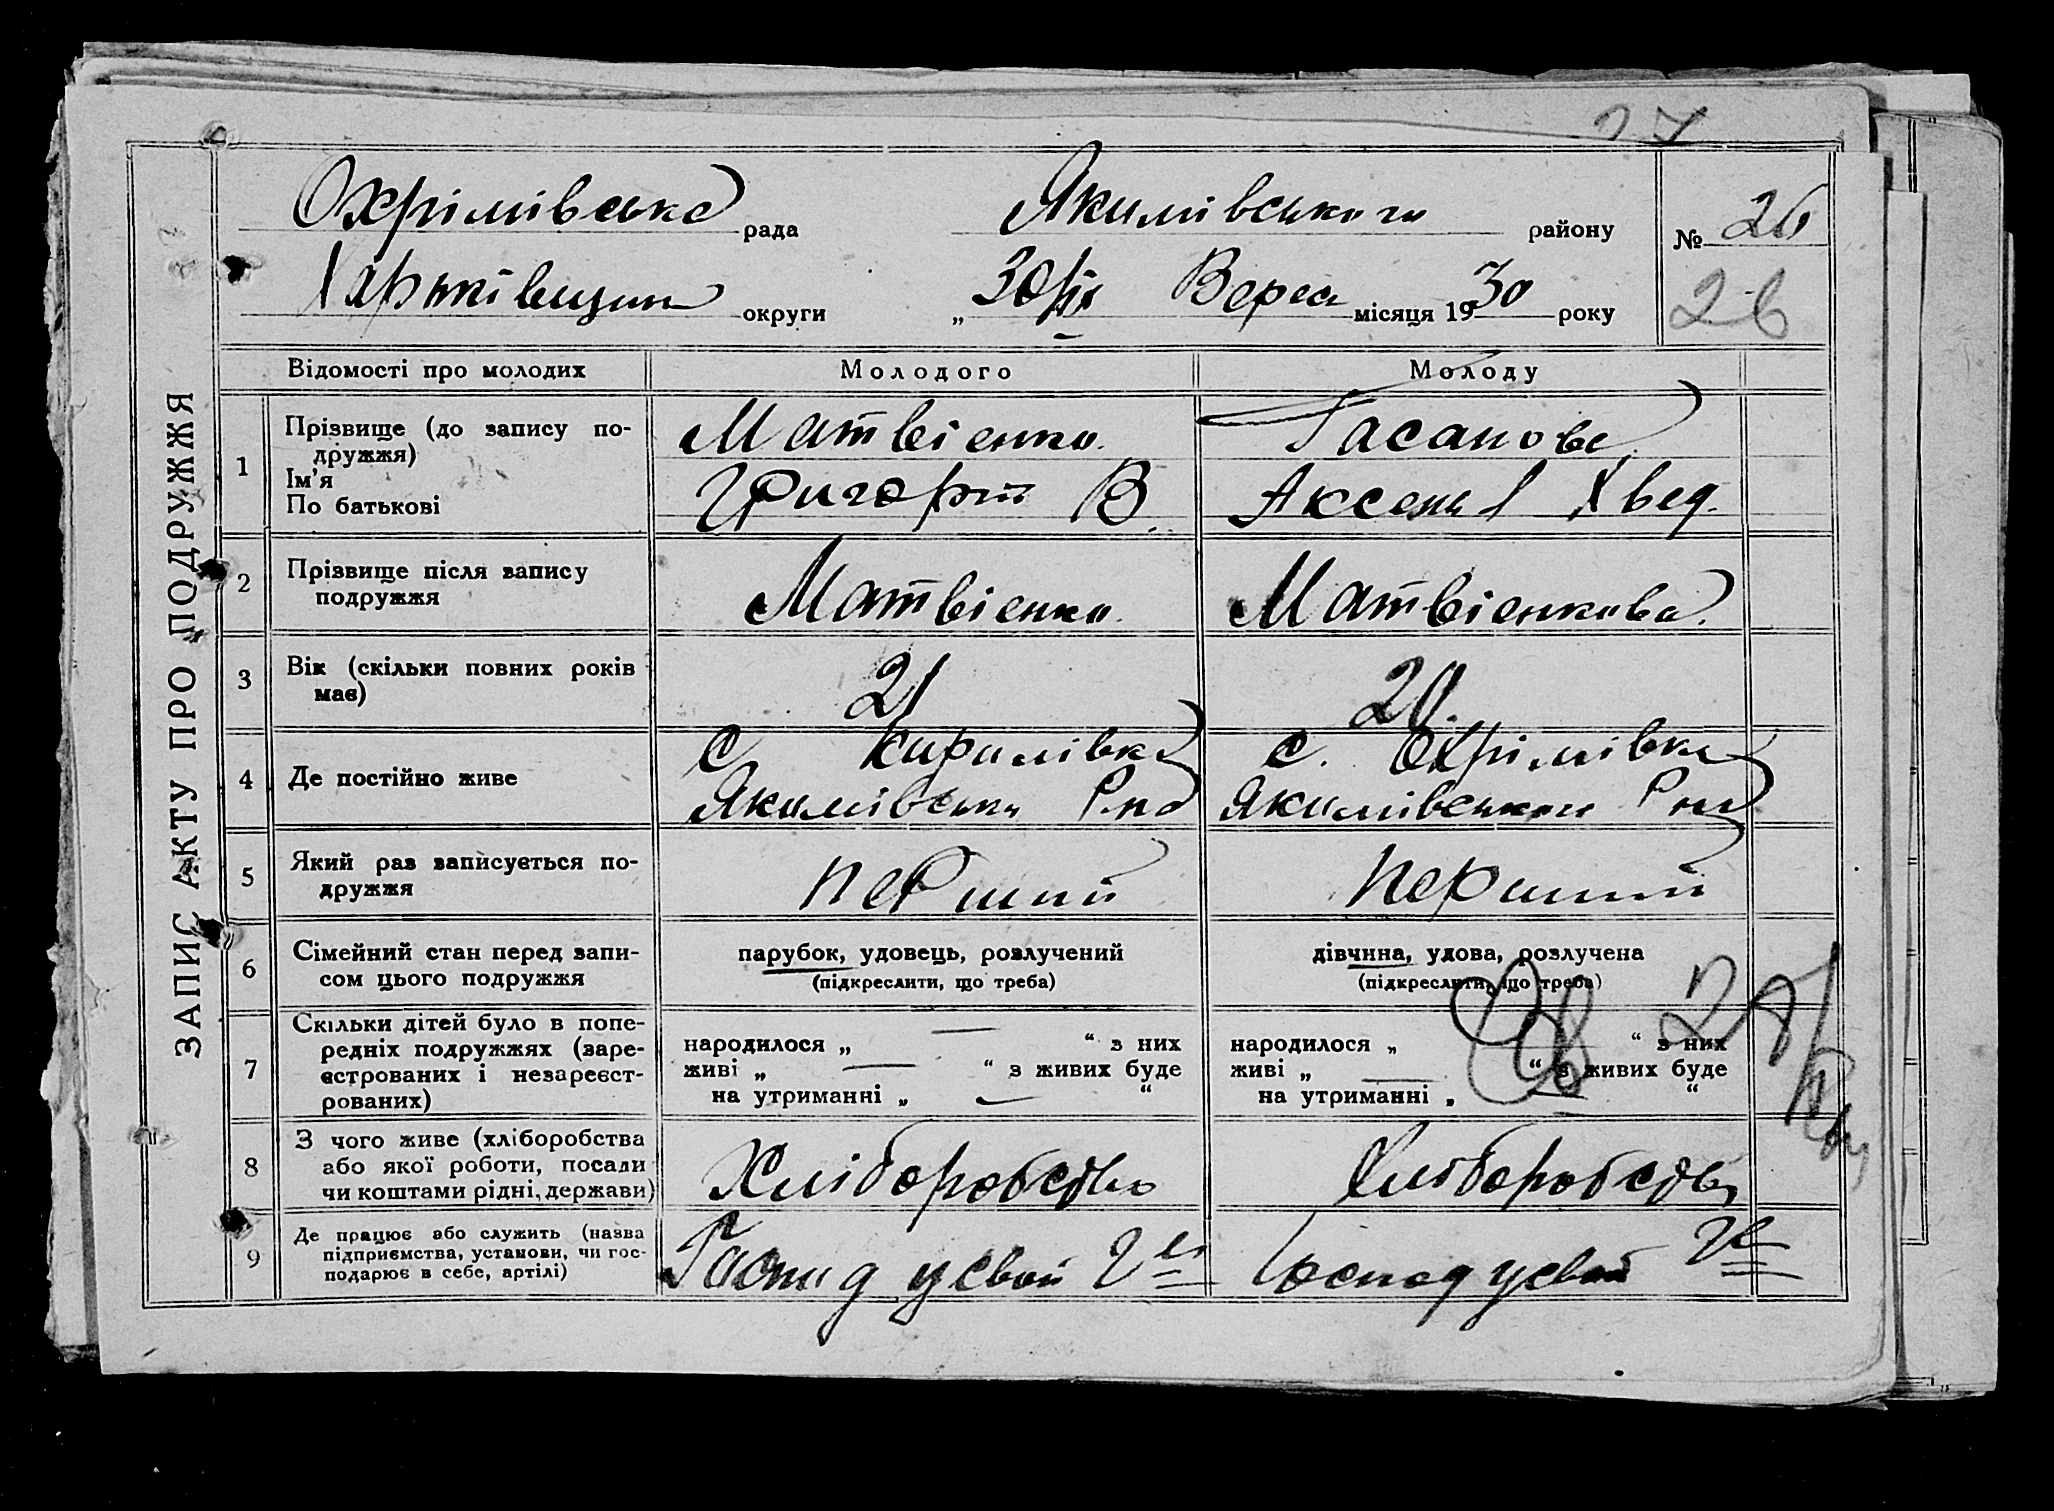 27
Охрімівська рада Якимівського району № 26
Харьківщин округи „ 30/ІХ Верес місяця 1930 року 26
ЗАПИС АКТУ ПРО ПОДРУЖЖЯ
Відомості про молодих Молодого Молоду
1 Прізвище (до запису по-
дружжя)
Ім'я
По батькові
Матвієнко.
Григорій В.
Гасанова
Аксенія Хвед.
2 Прізвище після запису
подружжя
Матвієнко.
Матвієнкова.
3 Вік (скільки повних років
має)
21
20.
4 Де постійно живе
с Кирилівка
Якимівськ
с. Охрімівка
Якимівського
5 Який раз записується по-
дружжя
перший
перший
6 Сімейний стан перед запи-
сом цього подружжя
парубок, удовець, розлучений
(підкреслити, що треба)
дівчина, удова, розлучена
(підкреслити, що треба)
7 Скільки дітей було в попе-
редніх подружжях (заре-
єстрованих і незареєст-
рованих)
народилося „ — “ з них
живі „ — “ з живих буде
на утриманні „ — “
народилося „ “ з них
живі „ — “ з живих буде
на утриманні „ — “
8 З чого живе (хліборобства
або якої роботи, посади
чи коштами рідні, держави)
Хліборобство
Хліборобство
9 Де працює або служить (назва
підприємства, установи, чи гос-
подарює в себе, артілі)
Господ у свой
Господ у свой